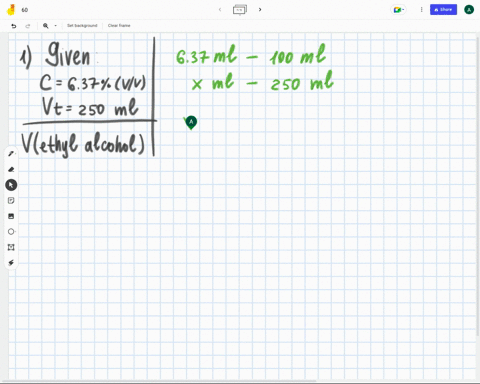 60
Set background Clear frame
Share
A
1) Given
C = 6.37% (V/V)
Vt = 250 ml
V(ethyl alcohol)
6.37 ml – 100 ml
x ml – 250 ml
A